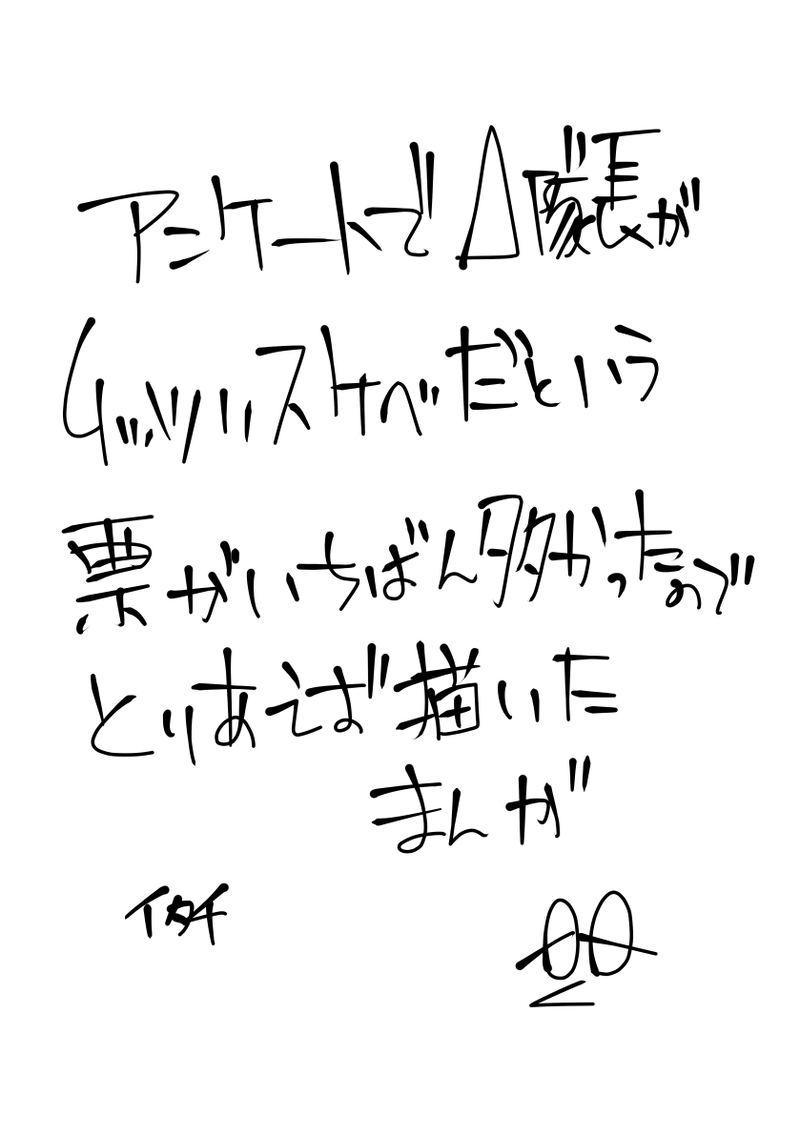 アンケートで△隊長が
ムッツリスケベだという
票がいちばん多かったので
とりあえず描いた
まんが
イタチ